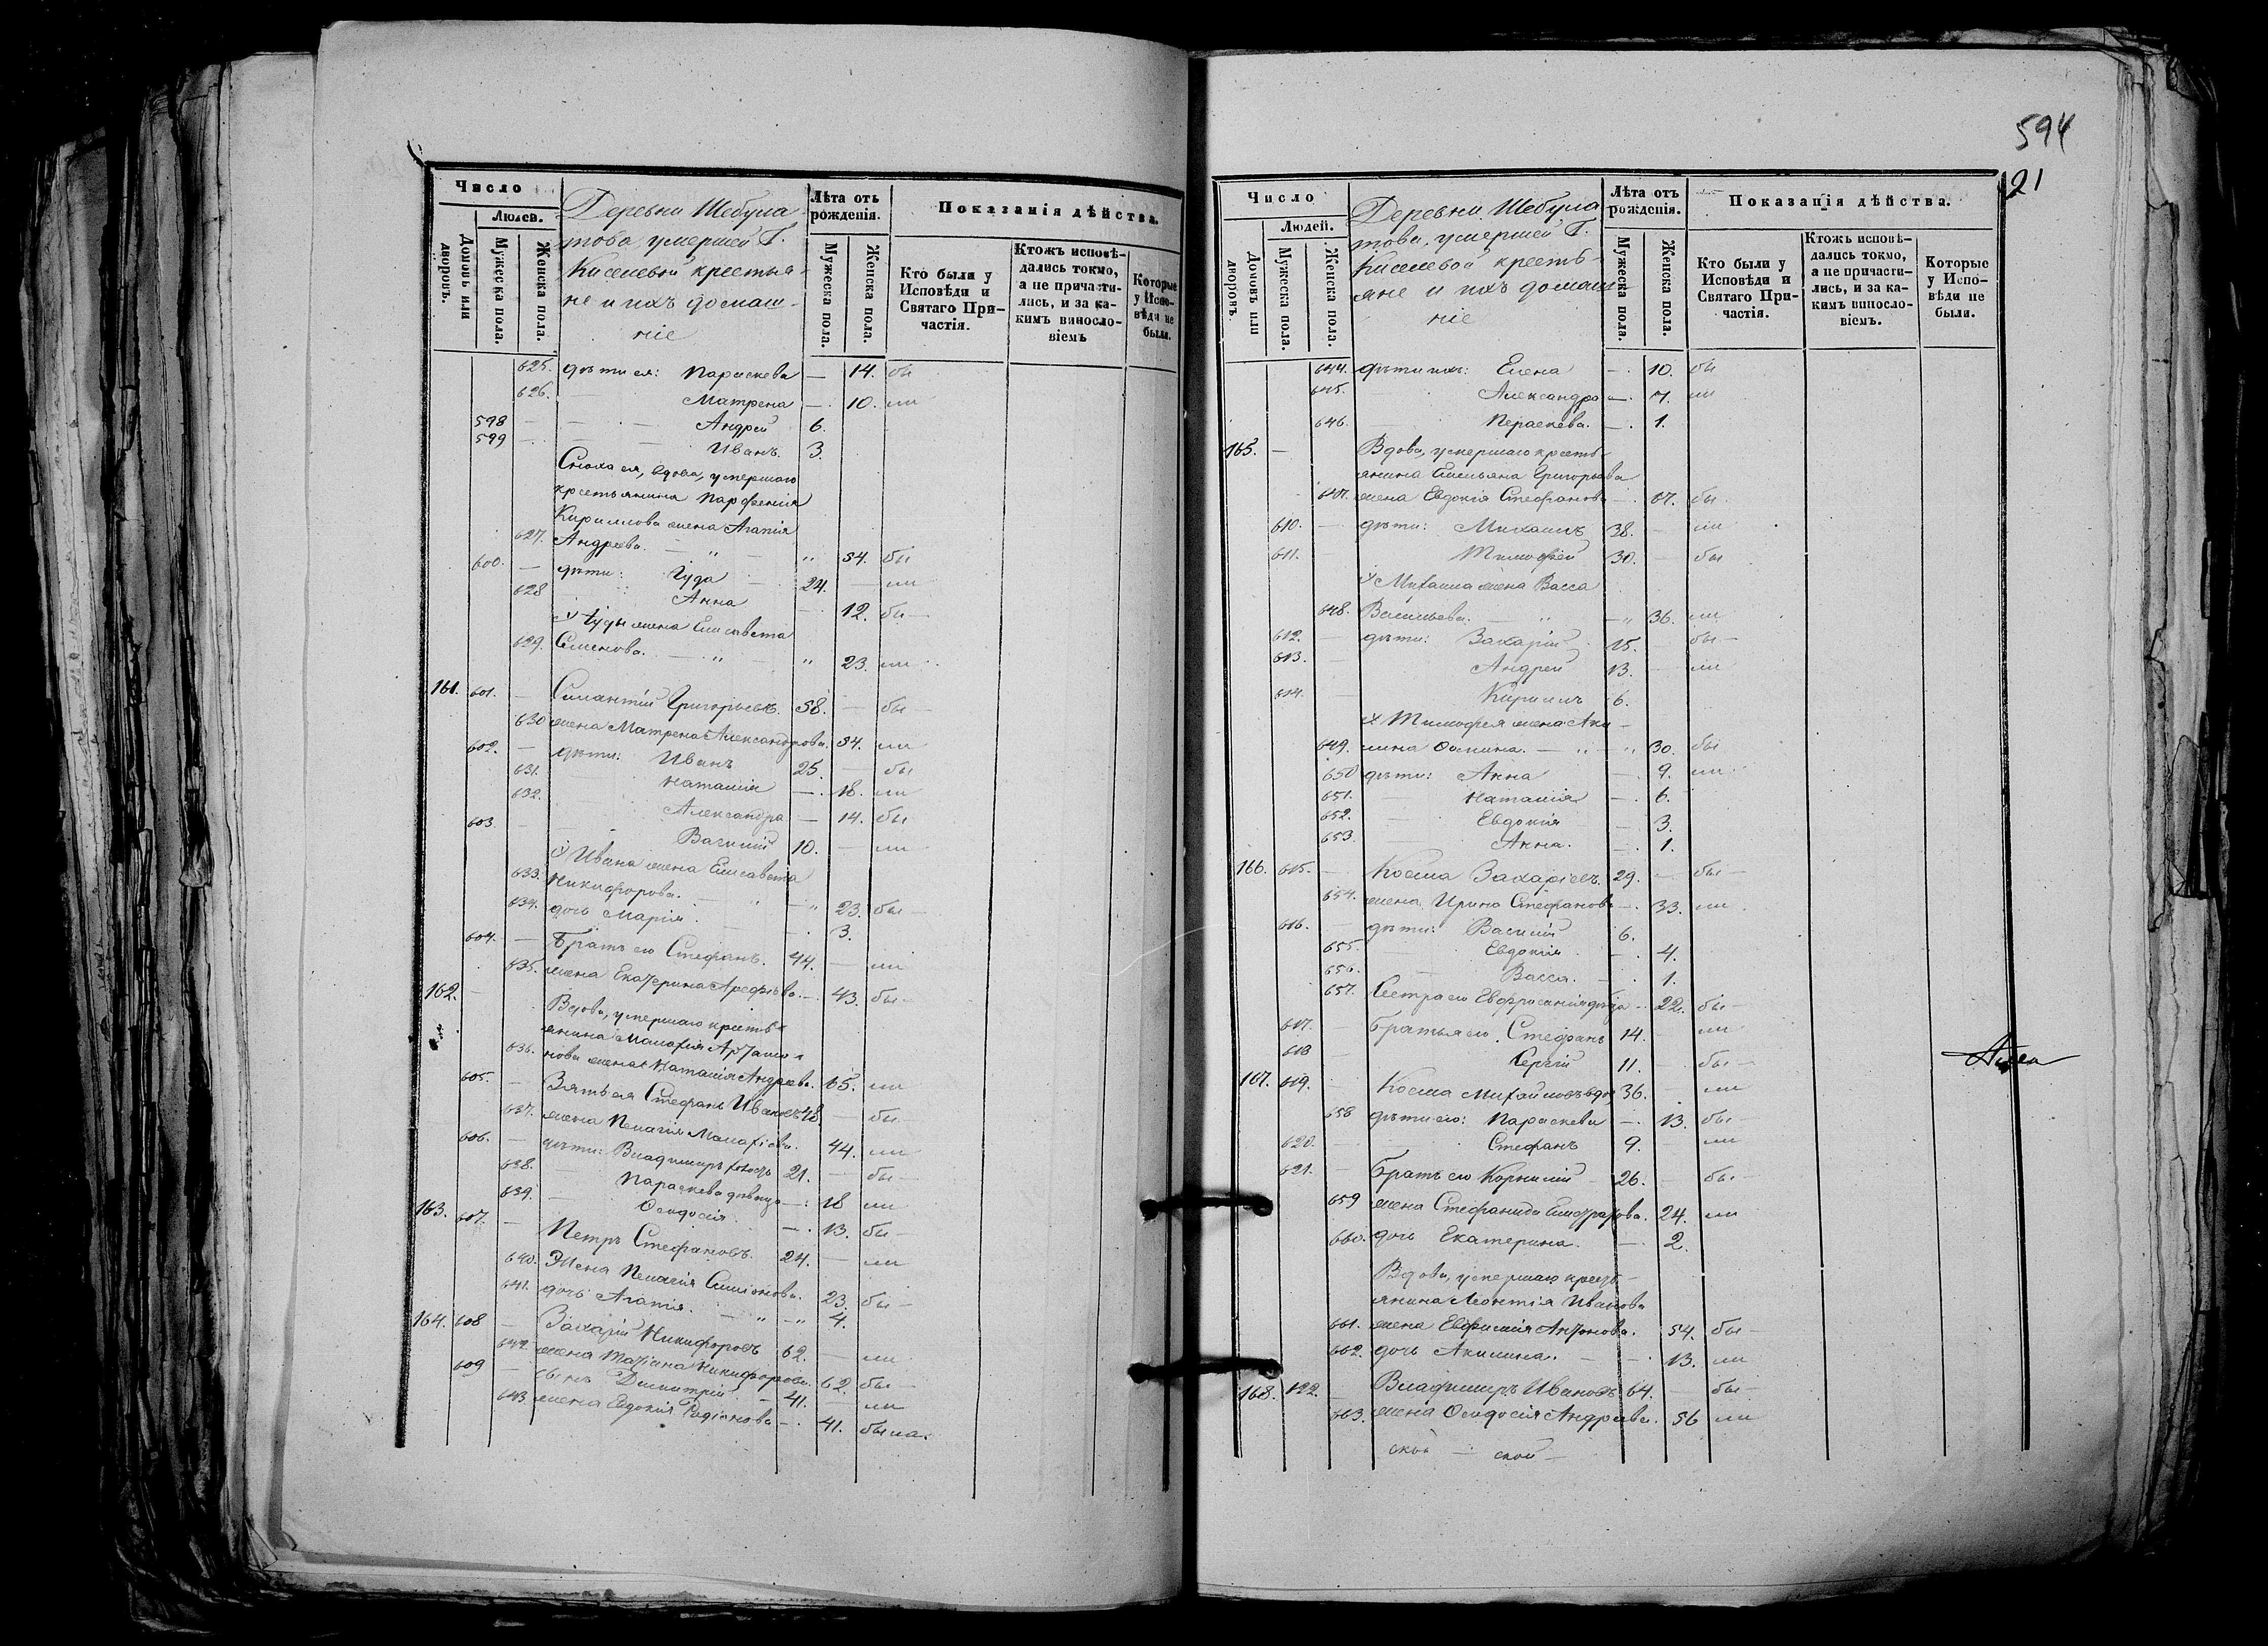 594
21
Число
Людей.
Домовъ или дворовъ.
Мужеска пола.
Женска пола.
Деревни Шебула-
това, умершей Г.
Киселевой крестья-
не и ихъ домаш-
ніе
Лѣта отъ рожденія.
Мужеска пола.
Женска пола.
Показанія дѣйства.
Кто были у Исповѣди и Святаго При-частія.
Ктожъ исповѣ-дались токмо, а не причасти-лись, и за ка-кимъ винosло-віемъ
Которые у Испо-вѣди не были.
625. дѣти ея: Параскева — 14. бы
626. Матрена — 10. ли
598 — Андрей 6.
599 — Иванъ. 3.
Сноха ея, вдова, умершаго
крестьянина Парфенія
Кириллова жена Агапія
627. Андреева. — " — " 54. бы
600. — дѣти: Іуда — 24. — ли
628 Анна — 12. бы —
Іуды жена Елисавета
629. Семенова. — " — " 23. ли
161. 601. — Силантій Григорьевъ. 58. — бы —
630 жена Матрена Александрова. 54. ли
602. — дѣти: Иванъ 25. — бы
631. Наталія — 18. ли
632. Александра — 14. бы
603 — Василій 10. — ли
Ивана жена Елисавета
633. Никифорова. — " — " 23. бы —
634. дочь Марія. — 3.
604. — Братъ его Стефанъ. 44. — ли
635. жена Екатерина Арефьева. — 43. бы —
162. — Вдова, умершаго кресть-
янина Малафія Артамо-
636. нова жена Наталія Андреева. 65. ли
605. — Зять ея Стефанъ Ивановъ 48. — бы
637. жена Пелагія Малафіева. 44. ли
606. — дѣти: Владимиръ холостъ 21. — бы —
638. — Параскева дѣвица — 18 ли
639. — Ѳеодосія. — 13. бы —
163. 607. — Петръ Стефановъ. 24. — ли
640. Жена Пелагія Симіонова. 23. бы —
641. дочь Агапія. — " — " 4.
164. 608 — Захарій Никифоровъ 62. — ли
642. жена Татіана Никифорова. 62. бы
609 — сынъ Димитрій — 41. — ли
643. жена Евдокія Родіонова — 41. была.
Число
Людей.
Домовъ или дворовъ.
Мужеска пола.
Женска пола.
Деревни Шебула-
това, умершей Г.
Киселевой кресть-
яне и ихъ домаш-
ніе
Лѣта отъ рожденія.
Мужеска пола.
Женска пола.
Показанія дѣйства.
Кто были у Исповѣди и Святаго При-частія.
Ктожъ исповѣ-дались токмо, а не причасти-лись, и за ка-кимъ винословіемъ.
Которые у Испо-вѣди не были.
644. дѣти ихъ: Елена — 10. бы
645. — Александра — 7. ли
646. — Пераскева. — 1.
165. — Вдова, умершаго кресть-
янина Емельяна Григорьева
647. жена Евдокія Стефанова — 67. бы
610. — дѣти: Михаилъ 38. — ли
611. Тимофей 30. — бы
Михаила жена Васса
648. Васильева. — " — " 36. ли
612. — дѣти: Захарій 15. — бы —
613. — Андрей 13. — ли
614. — Кириллъ 6.
Тимофея жена Аку-
649. лина Ѳомина. — " — " 30. бы
650 дѣти: Анна — 9. ли
651. — Наталія — 6.
652. — Евдокія — 3.
653. — Анна. — 1.
166. 615. — Косма Захаріевъ. 29. — бы —
654. жена Ирина Стефанова — 33. ли
616. — дѣти: Василій 6.
655. — Евдокія — 4.
656. — Васса. — 1.
657. Сестра его Евфросинія дѣвица — 22. бы —
617. — братья его Стефанъ 14. — ли
618 — Сергій 11. — бы —
167. 619. — Косма Михайловъ вдов 36. — ли
658 дѣти его: Параскева — 13. бы —
620. — Стефанъ 9. — ли
621. — Братъ его Корнилій — 26. — бы —
659 жена Стефанида Евграфова. 24. ли
660. дочь Екатерина. — 2.
Вдова, умершаго кресть-
янина Леонтія Иванова
661. жена Евфимія Антонова. 54. бы —
662. дочь Акилина. — 13. ли
168. 622. — Владимиръ Ивановъ. 64. — бы —
663. жена Ѳеодосія Андреева. 56 ли